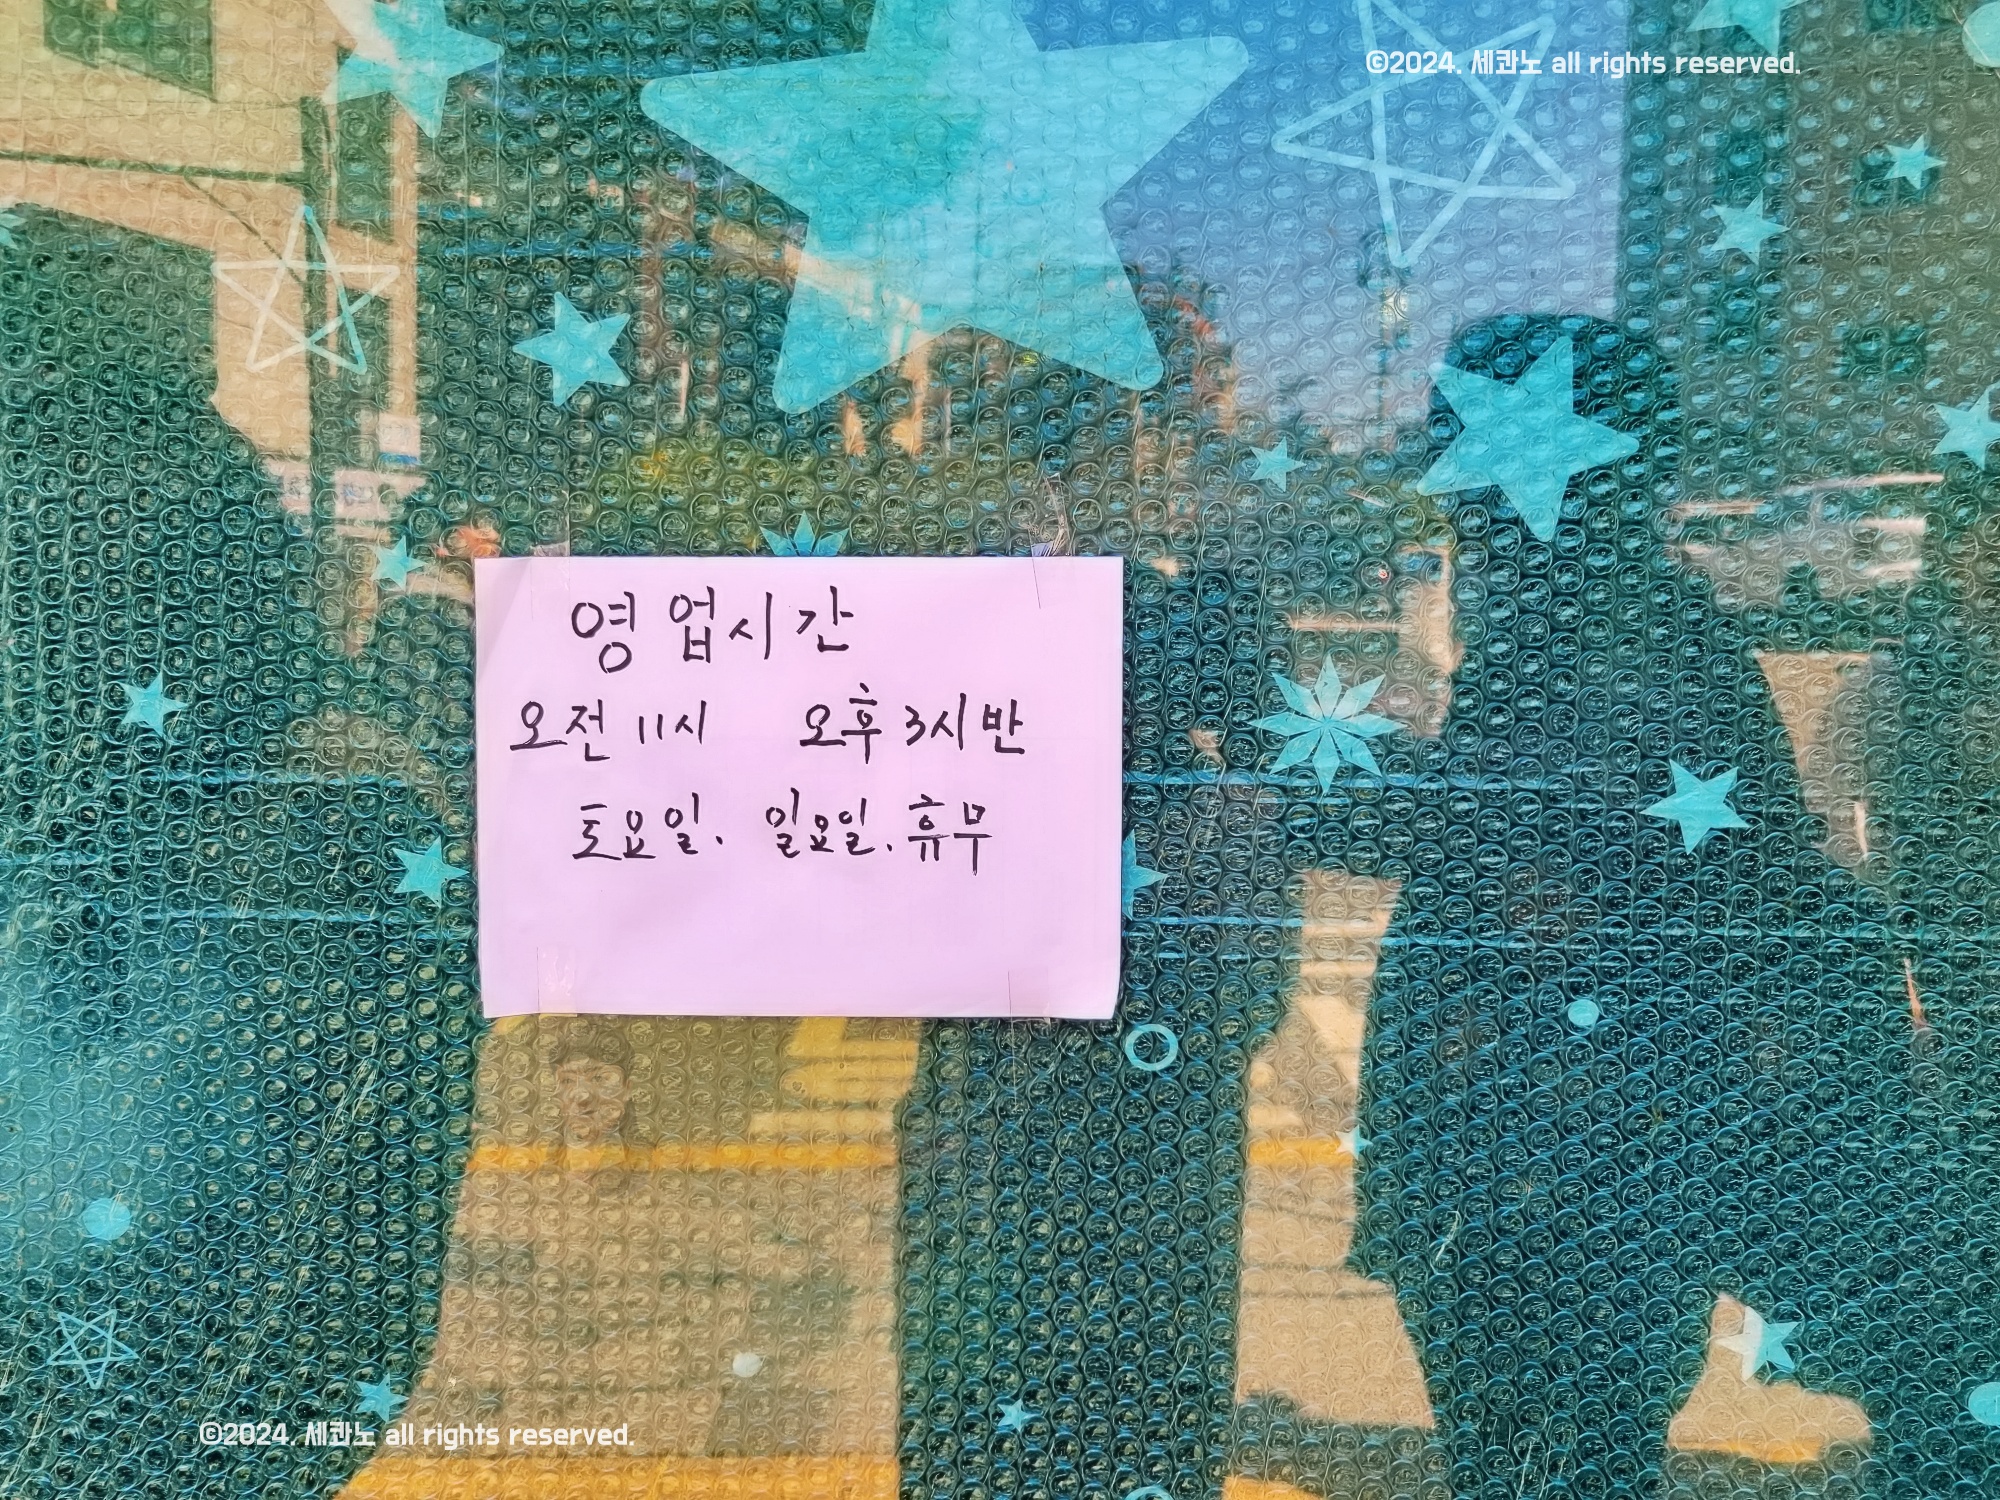 ©2024. 세콴노 all rights reserved.
영업시간
오전 11시 오후 3시반
토요일. 일요일. 휴무
©2024. 세콴노 all rights reserved.